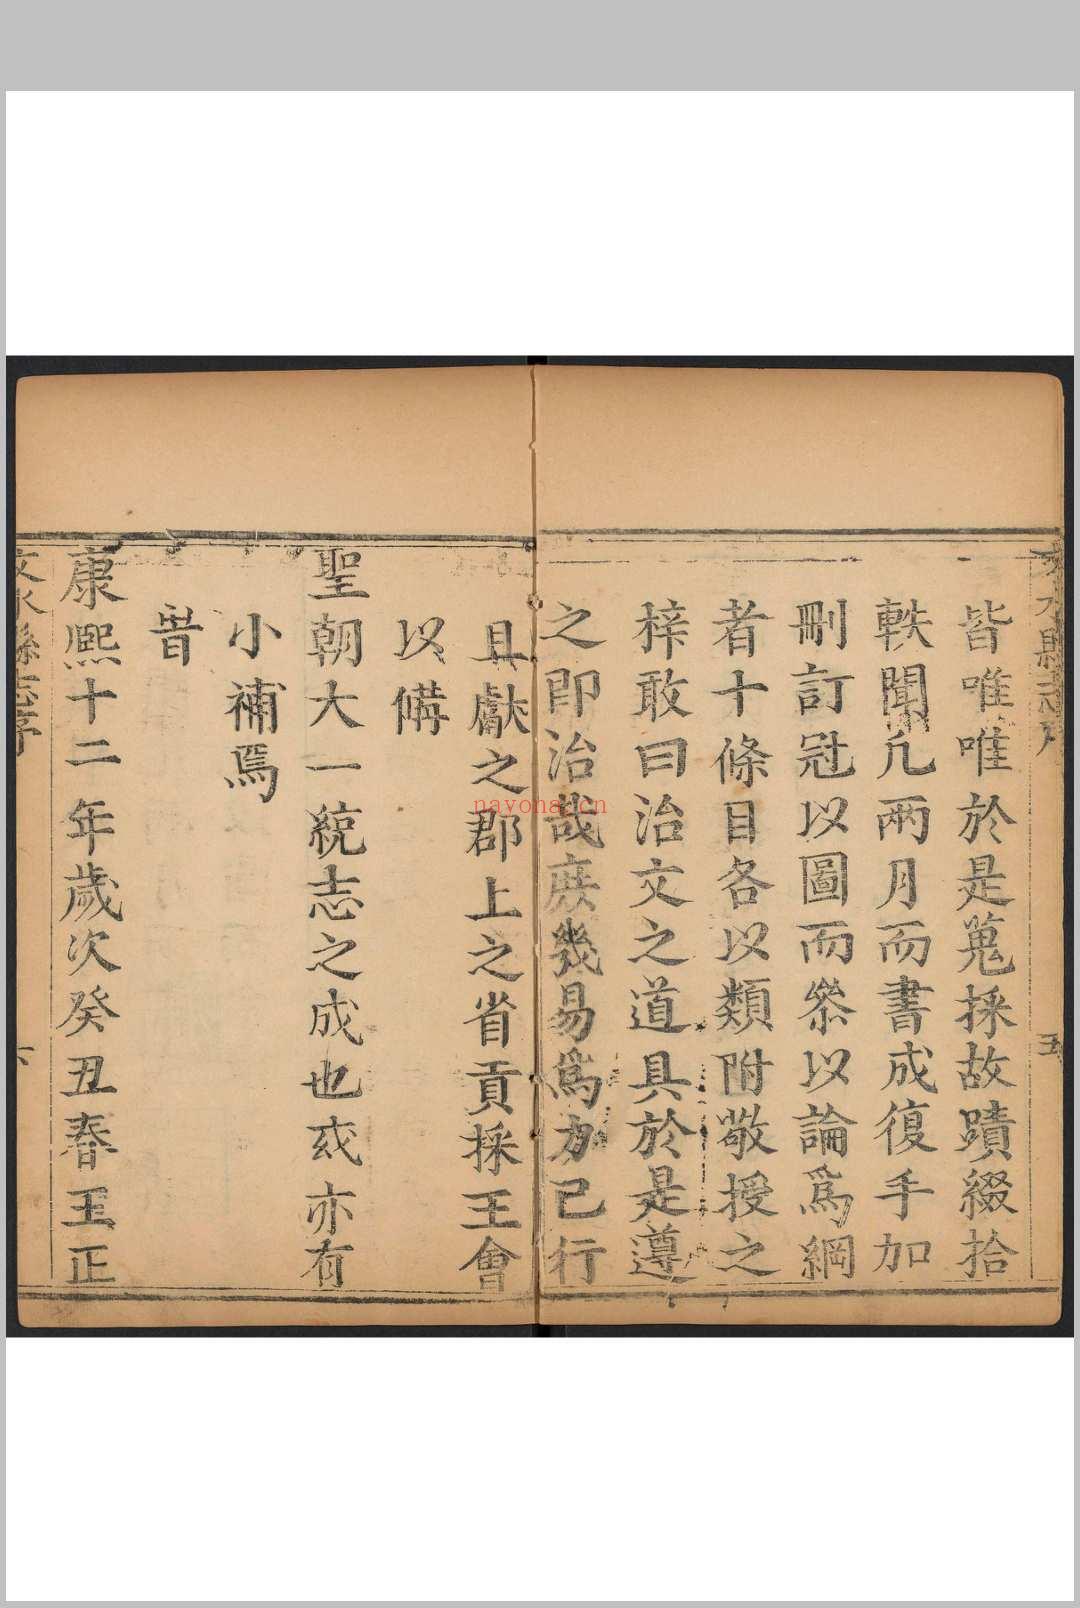 文水縣志序
五
皆唯唯於是蒐採故蹟綴拾
軼聞凢兩月而書成復手加
刪訂冠以圖而叅以論爲綱
者十條目各以類附敬授之
梓敢曰治文之道具於是遵
之即治哉庶幾易爲力已行
且獻之郡上之省貢採王會
以備
聖朝大一統志之成也或亦有
小補焉
旹
康熙十二年歲次癸丑春王正
文水縣志序
六
nayona.cn